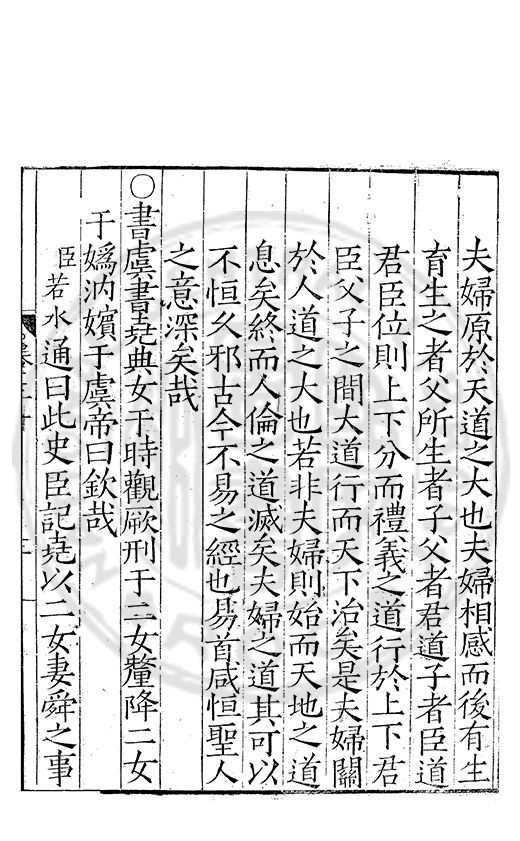 夫婦原於天道之大也夫婦相感而後有生
育生之者父所生者子父者君道子者臣道
君臣位則上下分而禮義之道行於上下君
臣父子之間大道行而天下治矣是夫婦關
於人道之大也若非夫婦則始而天地之道
息矣終而人倫之道滅矣夫婦之道其可以
不恒久邪古今不易之經也易首咸恒聖人
之意深矣哉
○書虞書堯典女于時觀厥刑于二女釐降二女
于嬀汭嬪于虞帝曰欽哉
臣若水通曰此史臣記堯以二女妻舜之事